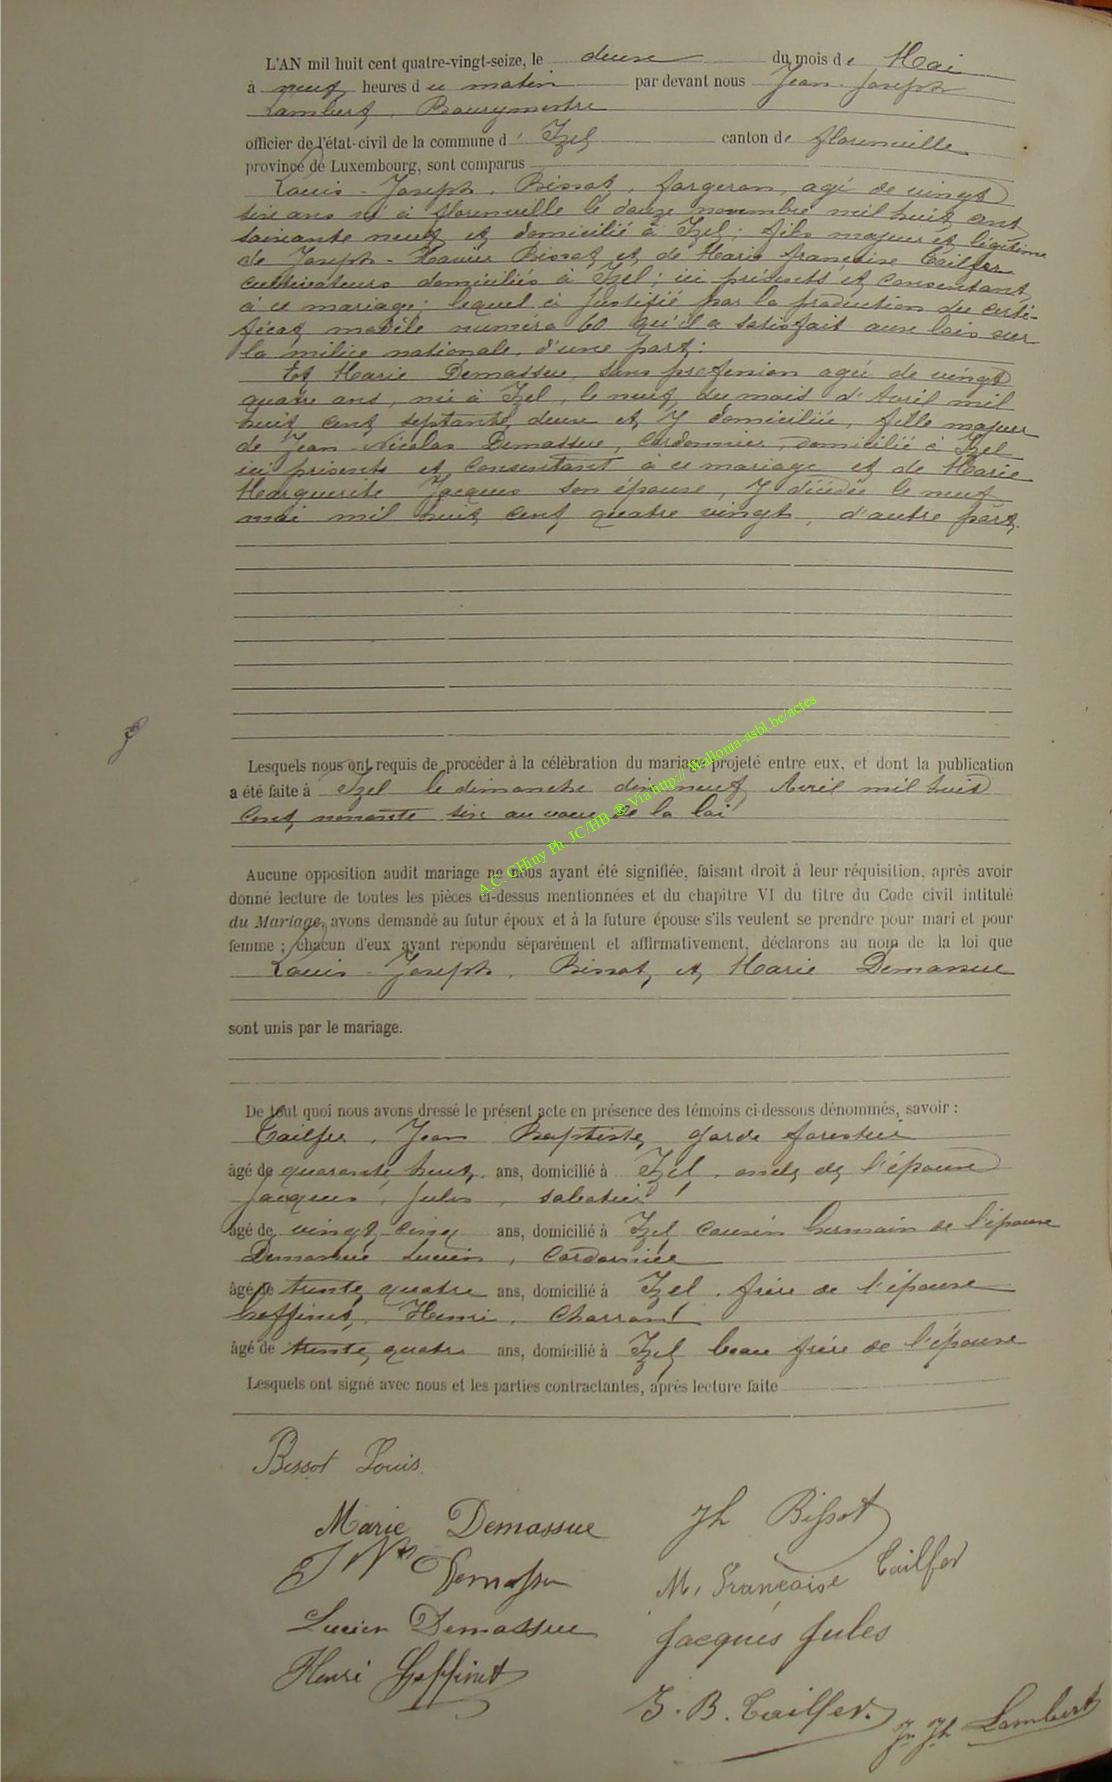 L'AN mil huit cent quatre-vingt-seize, le deux du mois de Mai
à neuf heures du matin par devant nous Jean Joseph
Lambert, Bourgmestre
officier de l'état-civil de la commune d' Izel canton de florenville
province de Luxembourg, sont comparus
Louis-Joseph, Bissot, forgeron, agé de vingt
six ans né à florenville le douze novembre mil huit cent
soixante neuf et domicilié à Izel; fils majeur et légitime
de Joseph-Xavier Bissot et de Marie françoise Tailfer
cultivateurs domiciliés à Izel; ici présents et consentant
à ce mariage; lequel à justifié par la production du certi-
ficat modèle numéro 60 qu'il a satisfait aux lois sur
la milice nationale, d'une part;
Et Marie Demassue, sans profession agée de vingt
quatre ans, née à Izel, le neuf du mois d'Avril mil
huit cent septante deux et y domiciliée, fille majeur
de Jean-Nicolas Demassue, cordonnier, domicilié à Izel
ici présents et consentant à ce mariage et de Marie
Marguerite Jacques son épouse, y décédée le neuf
mai mil huit cent quatre vingt, d'autre part.
Lesquels nous ont requis de procéder à la célébration du mariage projeté entre eux, et dont la publication
a été faite à Izel le dimanche dix neuf Avril mil huit
cent nonante six au vœu de la loi
Aucune opposition audit mariage ne nous ayant été signifiée, faisant droit à leur réquisition, après avoir
donné lecture de toutes les pièces ci-dessus mentionnées et du chapitre VI du titre du Code civil intitulé
du Mariage, avons demandé au futur époux et à la future épouse s'ils veulent se prendre pour mari et pour
femme ; chacun d'eux ayant répondu séparément et affirmativement, déclarons au nom de la loi que
Louis-Joseph, Bissot et Marie Demassue
sont unis par le mariage.
De tout quoi nous avons dressé le présent acte en présence des témoins ci-dessous dénommés, savoir :
Tailfer, Jean Baptiste, garde forestier
âgé de quarante huit ans, domicilié à Izel, oncle de l'époux
Jacques, Jules, sabotier
âgé de vingt cinq ans, domicilié à Izel cousin germain de l'épouse
Demassue Lucien, Cordonnier
âgé de trente quatre ans, domicilié à Izel, frère de l'épouse
Goffinet, Henri, Charron
âgé de trente quatre ans, domicilié à Izel beau frère de l'épouse
Lesquels ont signé avec nous et les parties contractantes, après lecture faite
Bissot Louis.
Marie Demassue Jh Bissot
J Nas Demassue M. Françoise Tailfer
Lucien Demassue Jacques Jules
Henri Goffinet J. B. Tailfer. Jn Jh Lambert
A.C. CHiny Ph. JC/HB ® Via http:// Wallonia-asbl.be/actes